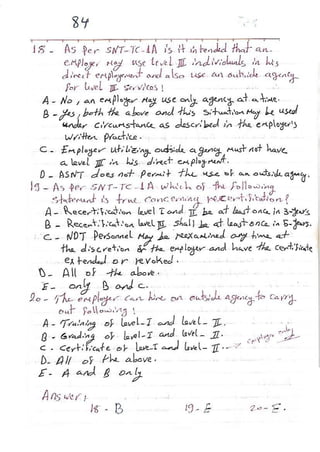 84
18- As per SNT-TC-1A is it intended that an.
employer may use level III individuals in his
direct employement and also use an outside agency
for level III services!
A- No, an employer may use only agency at a time.
B- yes, both the above and this situation may be used
under circumstance as described in the employer's
written practice.
C- Employer utilizing outside agency must not have
a level III in his direct employment.
D- ASNT does not permit the use of an outside agency.
19- As per SNT-TC-1A which of the following
statement is true concerning recertification?
A- Recertification level I and II be at least once in 3-years
B- Recertification level III shall be at least once in 5-years.
C- NDT personnel may be reexamined any time at
the discretion of the employer and have the certificate
extended or revoked.
D- All of the above.
E- only B and C.
20- The employer can hire an outside agency to carry
out following!
A- Training of level-I and level-II.
B- Grading of level-I and level-II.
C- Certificate of level-I and level-II... employer only
D- All of the above.
E- A and B only
Answer:
18-B 19-E 20-E.